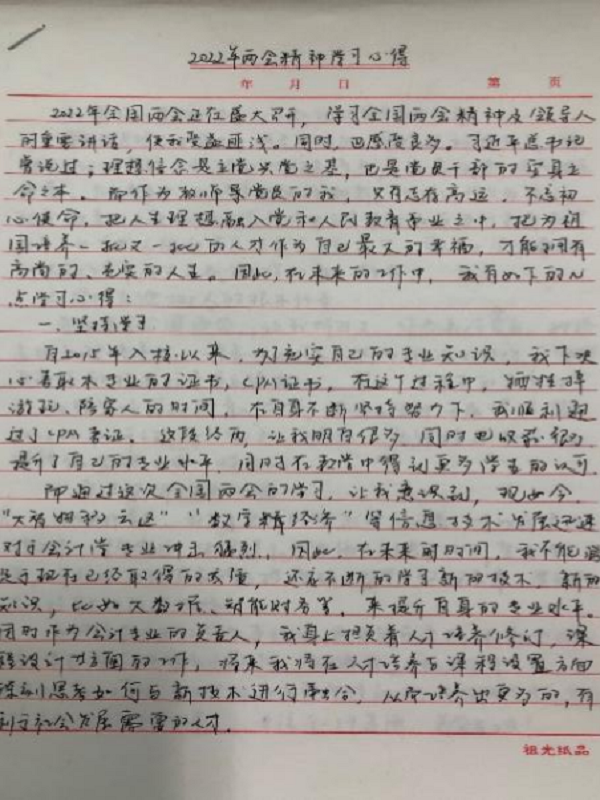 2022年两会精神学习心得
年 月 日 第 页
2022年全国两会正在盛大召开，学习全国两会精神及领导人
的重要讲话，使我受益匪浅。同时，也感受良多。习近平总书记
曾说过；理想信念是立党兴党之基，也是党员干部的安身立
命之本。而作为教师党员的我，只有志存高远，不忘初
心使命，把人生理想融入党和人民教育事业之中，把为祖
国培养一批又一批的人才作为自己最大的幸福，才能拥有
高尚的、充实的人生。因此，在未来的工作中，我有如下的几
点学习心得：
一、坚持学习
自2015年入校以来，为了充实自己的专业知识，我下决
心考取本专业的证书，CPA证书，在这个过程中，牺牲掉
游玩、陪家人的时间，在自身不断坚持努力下，我顺利通
过了CPA考证。这段经历，让我明白很多，同时也收获很多
提升了自己的专业水平，同时在教学中得到更多学生的认可。
而通过这次全国两会的学习，让我意识到，现如今，
"大智物移云区""数字经济"等信息技术发展迅速
对于会计学专业冲击强烈，因此，在未来的时间，我不能满
足于现在已经取得的成绩，还应不断的学习新的技术，新的
知识，比如大数据、智能财务等，来提升自身的专业水平。
同时作为会计专业的负责人，我身上担负着人才培养修订，课
程设计方面的工作，将来我将在人才培养与课程设置方面
深刻思考如何与新技术进行融合，从而培养出更多的，有
利于社会发展需要的人才。
祖光纸品